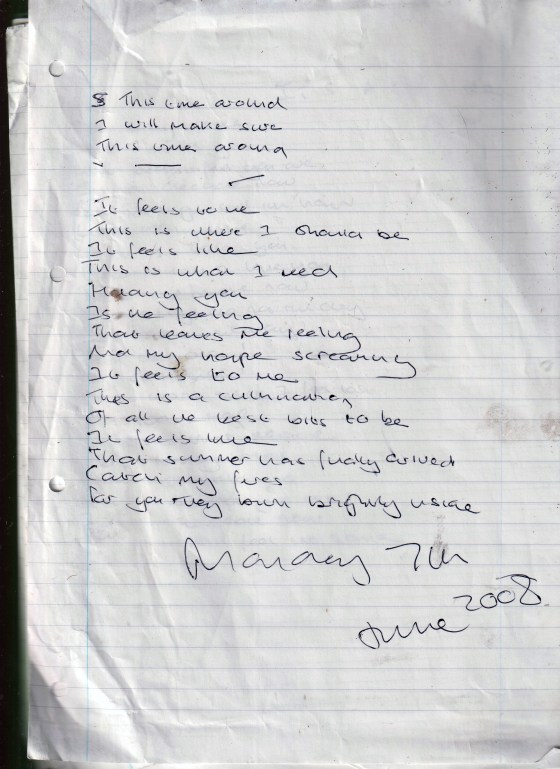 This time around
I will make sure
This time around
It feels to me
This is where I should be
It feels like
This is what I need
Having you
Is the feeling
That leaves me reeling
And my hope screaming
It feels to me
This is a culmination
Of all the best bits to be
It feels like
That summer has finally arrived
Catch my fires
For you they burn brightly inside
Monday 7th
June 2008